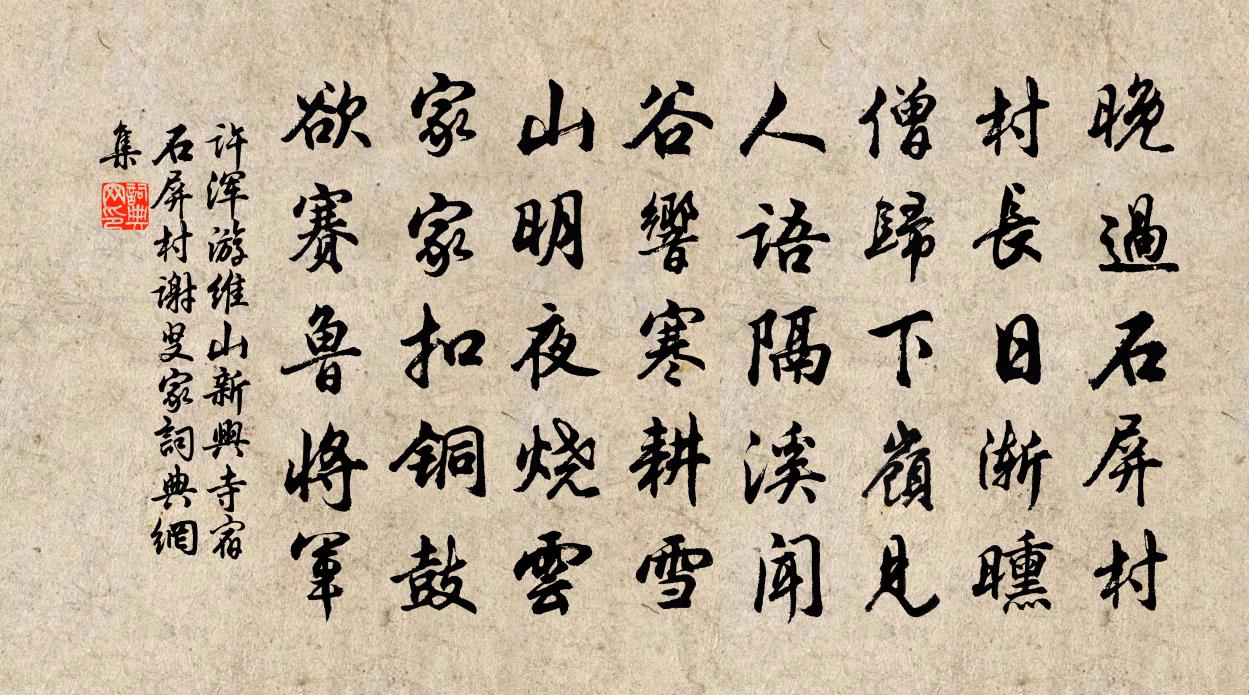 晚過石屏村
村長日漸曛
僧歸下嶺見
人語隔溪聞
谷響寒耕雪
山明夜烧雲
家家扣铜鼓
欲赛魯將軍
许浑游维山新興寺宿
石屏村谢叟家詞典網
集
詞典
网印